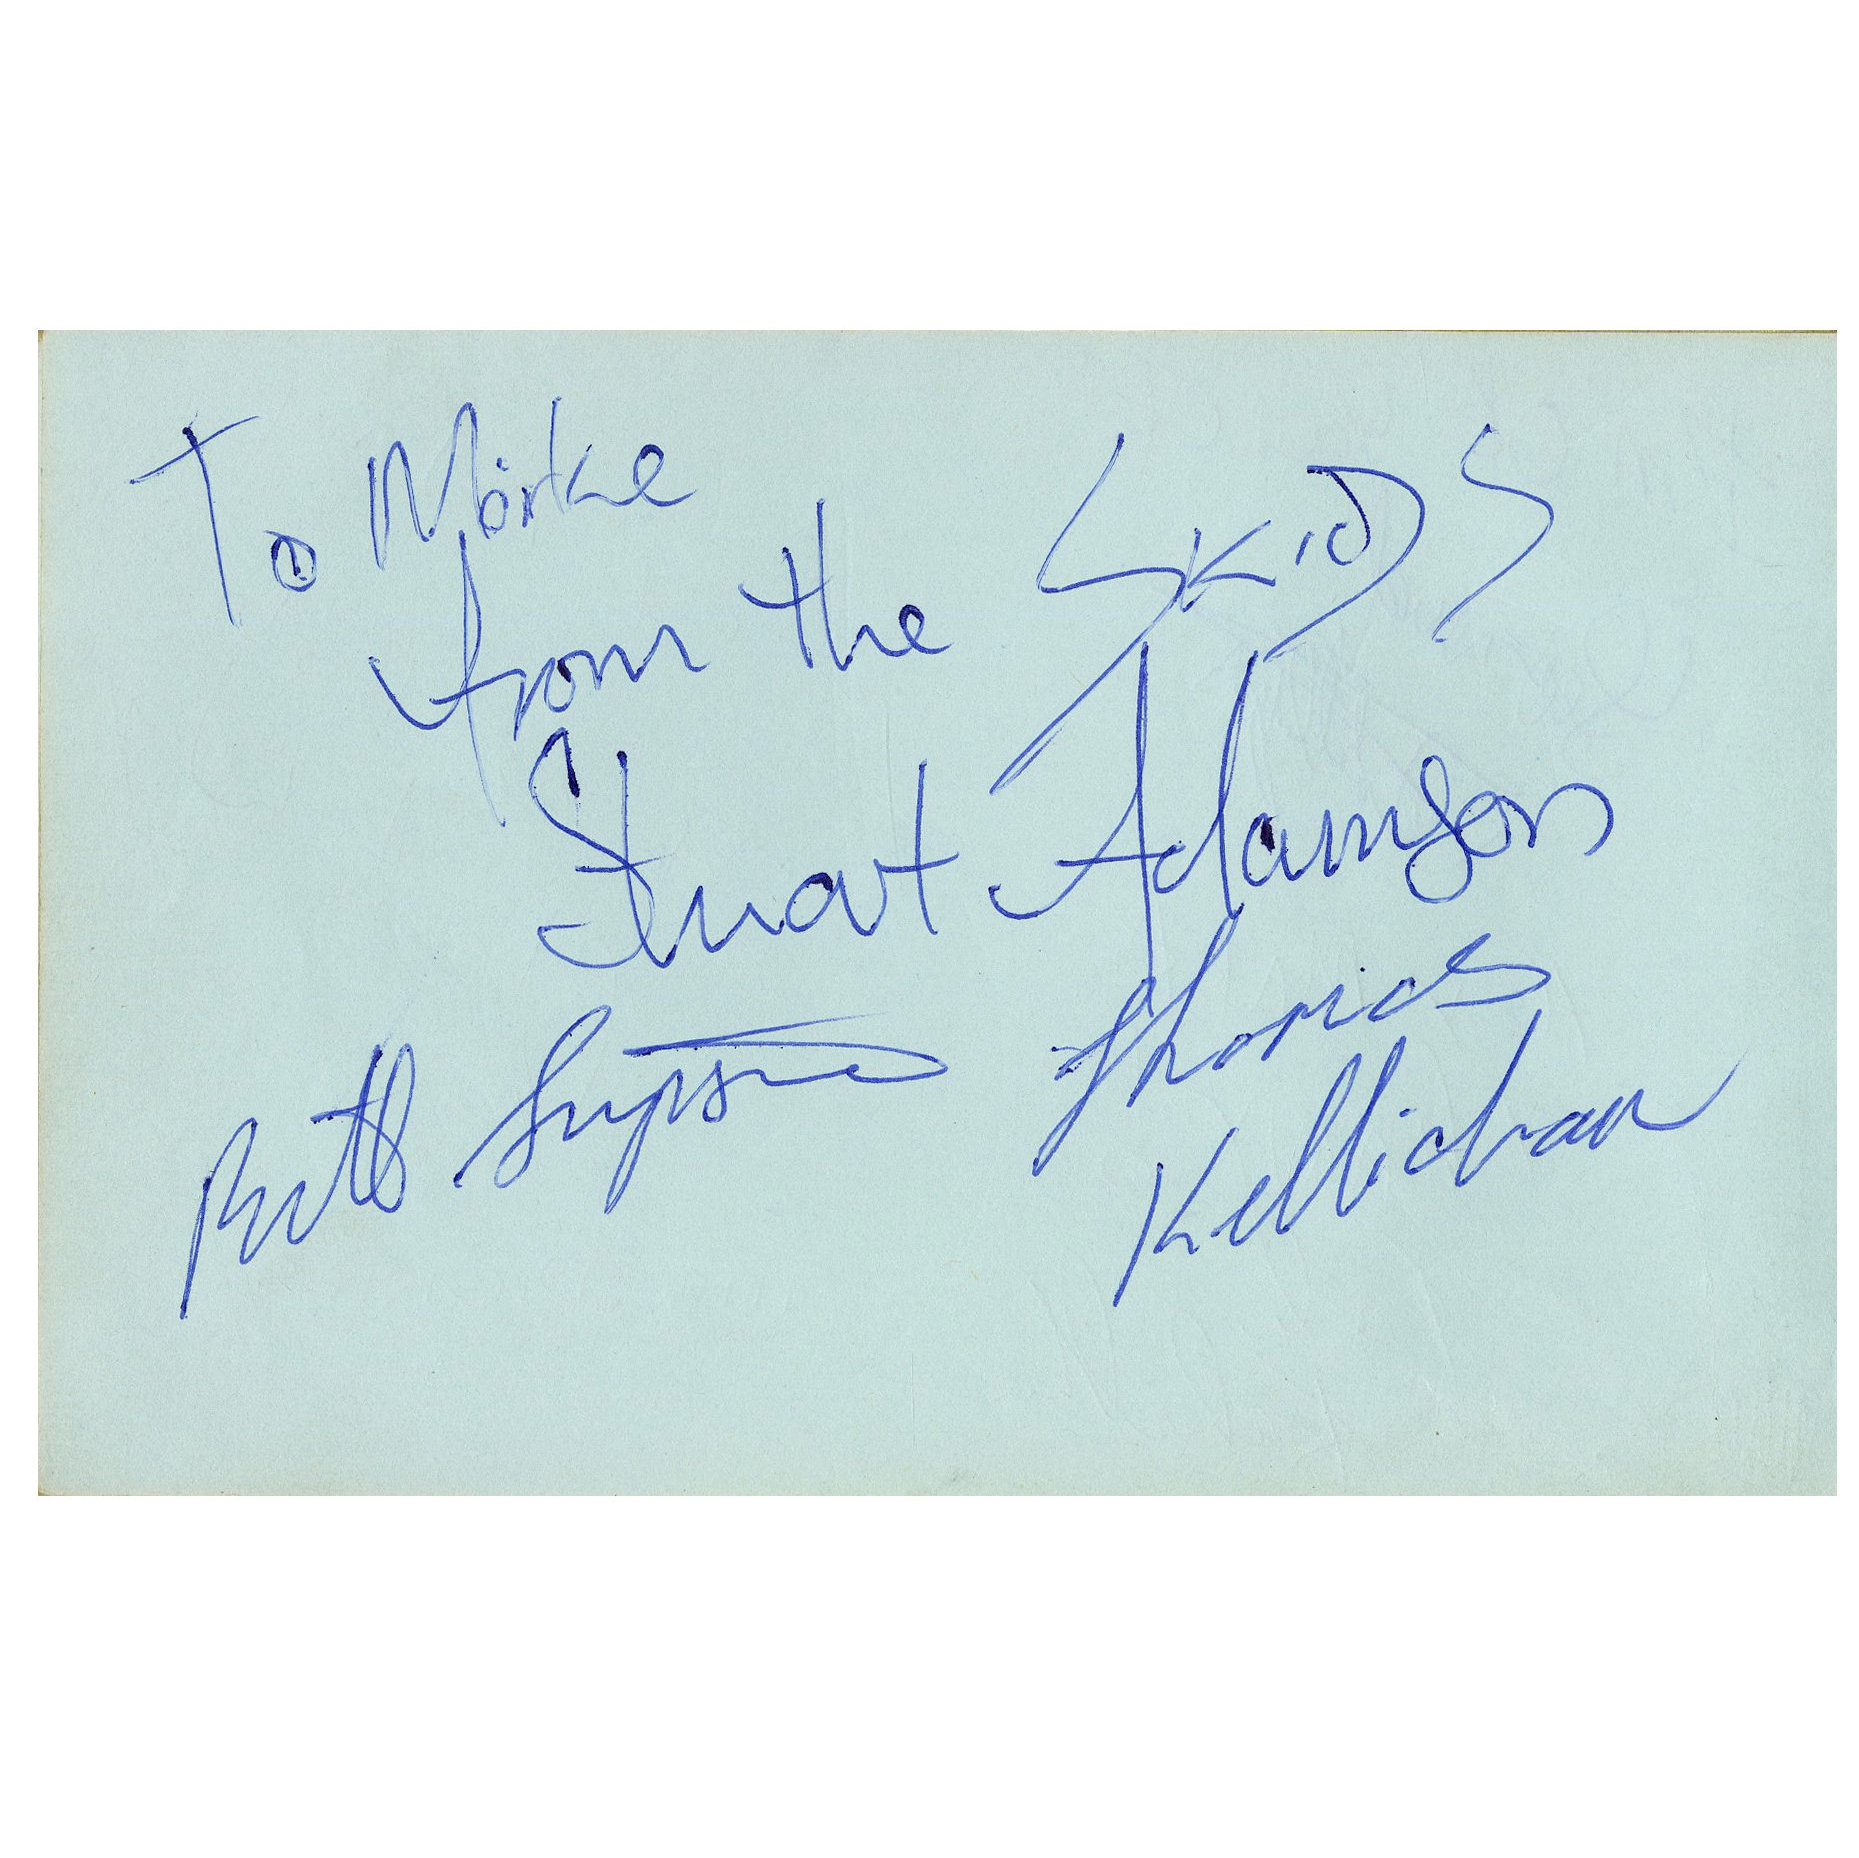 To Mike
from the SKIDS
Stuart Adamson
Bill Simpson
Thomas
Kellichan